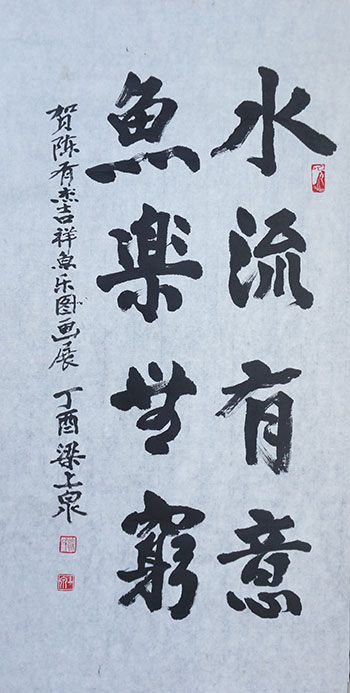 水流有意
魚楽無窮
贺陈有杰吉祥鱼乐图画展 丁酉梁上泉